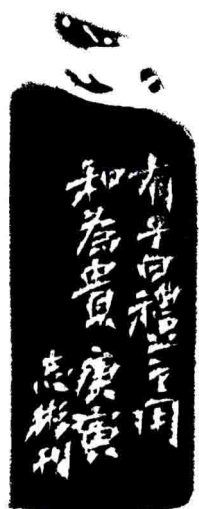 有子曰禮之用
和為貴 庚寅
志彬刊